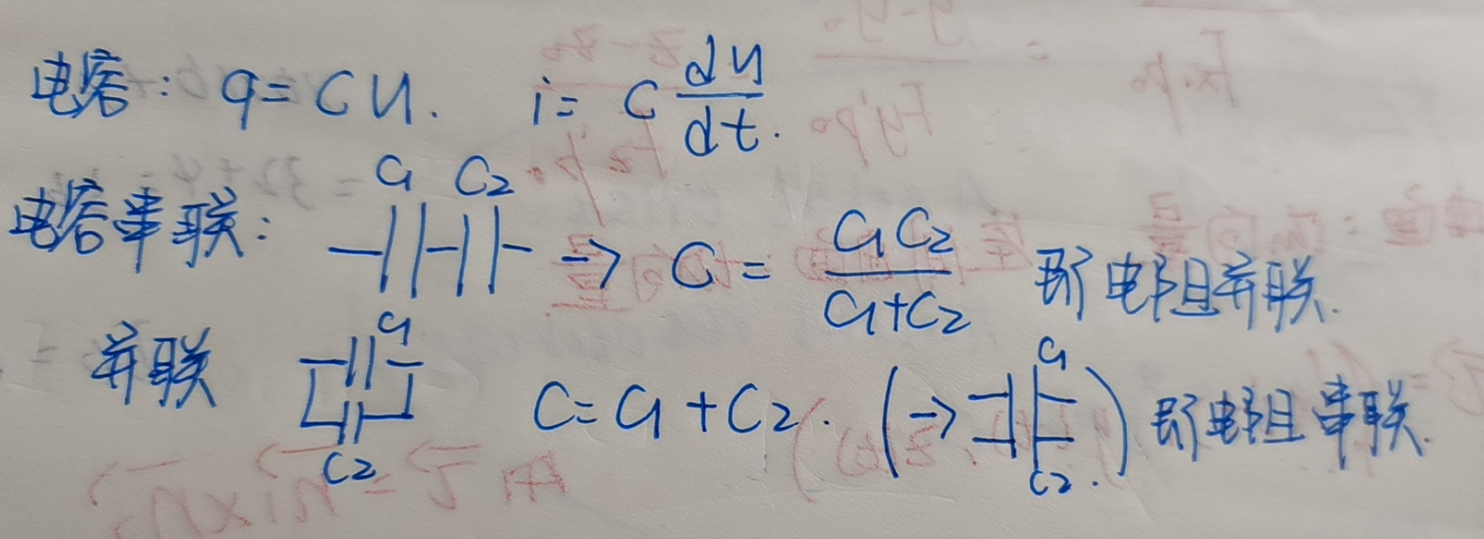 电容：q=CU. i= C du/dt.
电容串联： C1 C2 → C = C1C2/(C1+C2) 即电阻并联.
并联 C1 C2 C=C1+C2. (→ C1 C2.) 即电阻串联.